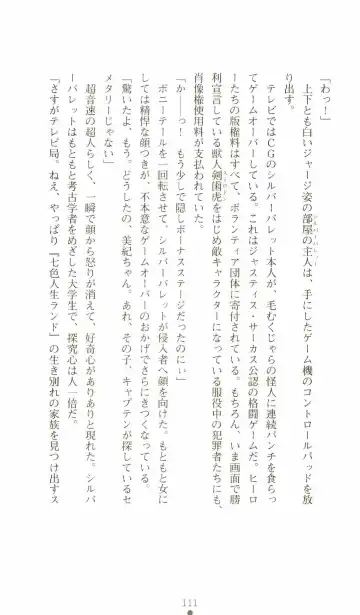 「わっ！」
上下とも白いジャージ姿の部屋の主人は、手にしたゲーム機のコントロールパッドを放
り出す。
テレビではCGのシルバーバレット本人が、毛むくじゃらの怪人に連続パンチを食らっ
てゲームオーバーしている。これはジャスティス・サーカス公認の格闘ゲームだ。ヒーロ
ーたちの版権料はすべて、ボランティア団体に寄付されている。もちろん、いま画面で勝
利宣言している獣人剣歯虎をはじめ敵キャラクターになっている服役中の犯罪者たちにも、
肖像権使用料が支払われていた。
「か――っ！　もう少しで隠しボーナスステージだったのにぃ」
ポニーテールを一回転させて、シルバーバレットが侵入者へ顔を向けた。もともと女に
しては精悍な顔つきが、不本意なゲームオーバーのおかげでさらにきつくなっている。
「驚いたよ、もう。どうしたの、美紀ちゃん。あれ、その子、キャプテンが探しているセ
メタリーじゃない」
超音速の超人らしく、一瞬で顔から怒りが消えて、好奇心がありありと現れた。シルバ
ーバレットはもともと考古学者をめざした大学生で、探究心は人一倍だ。
「さすがテレビ局。ねえ、やっぱり『七色人生ランド』の生き別れの家族を見つけ出すス
111